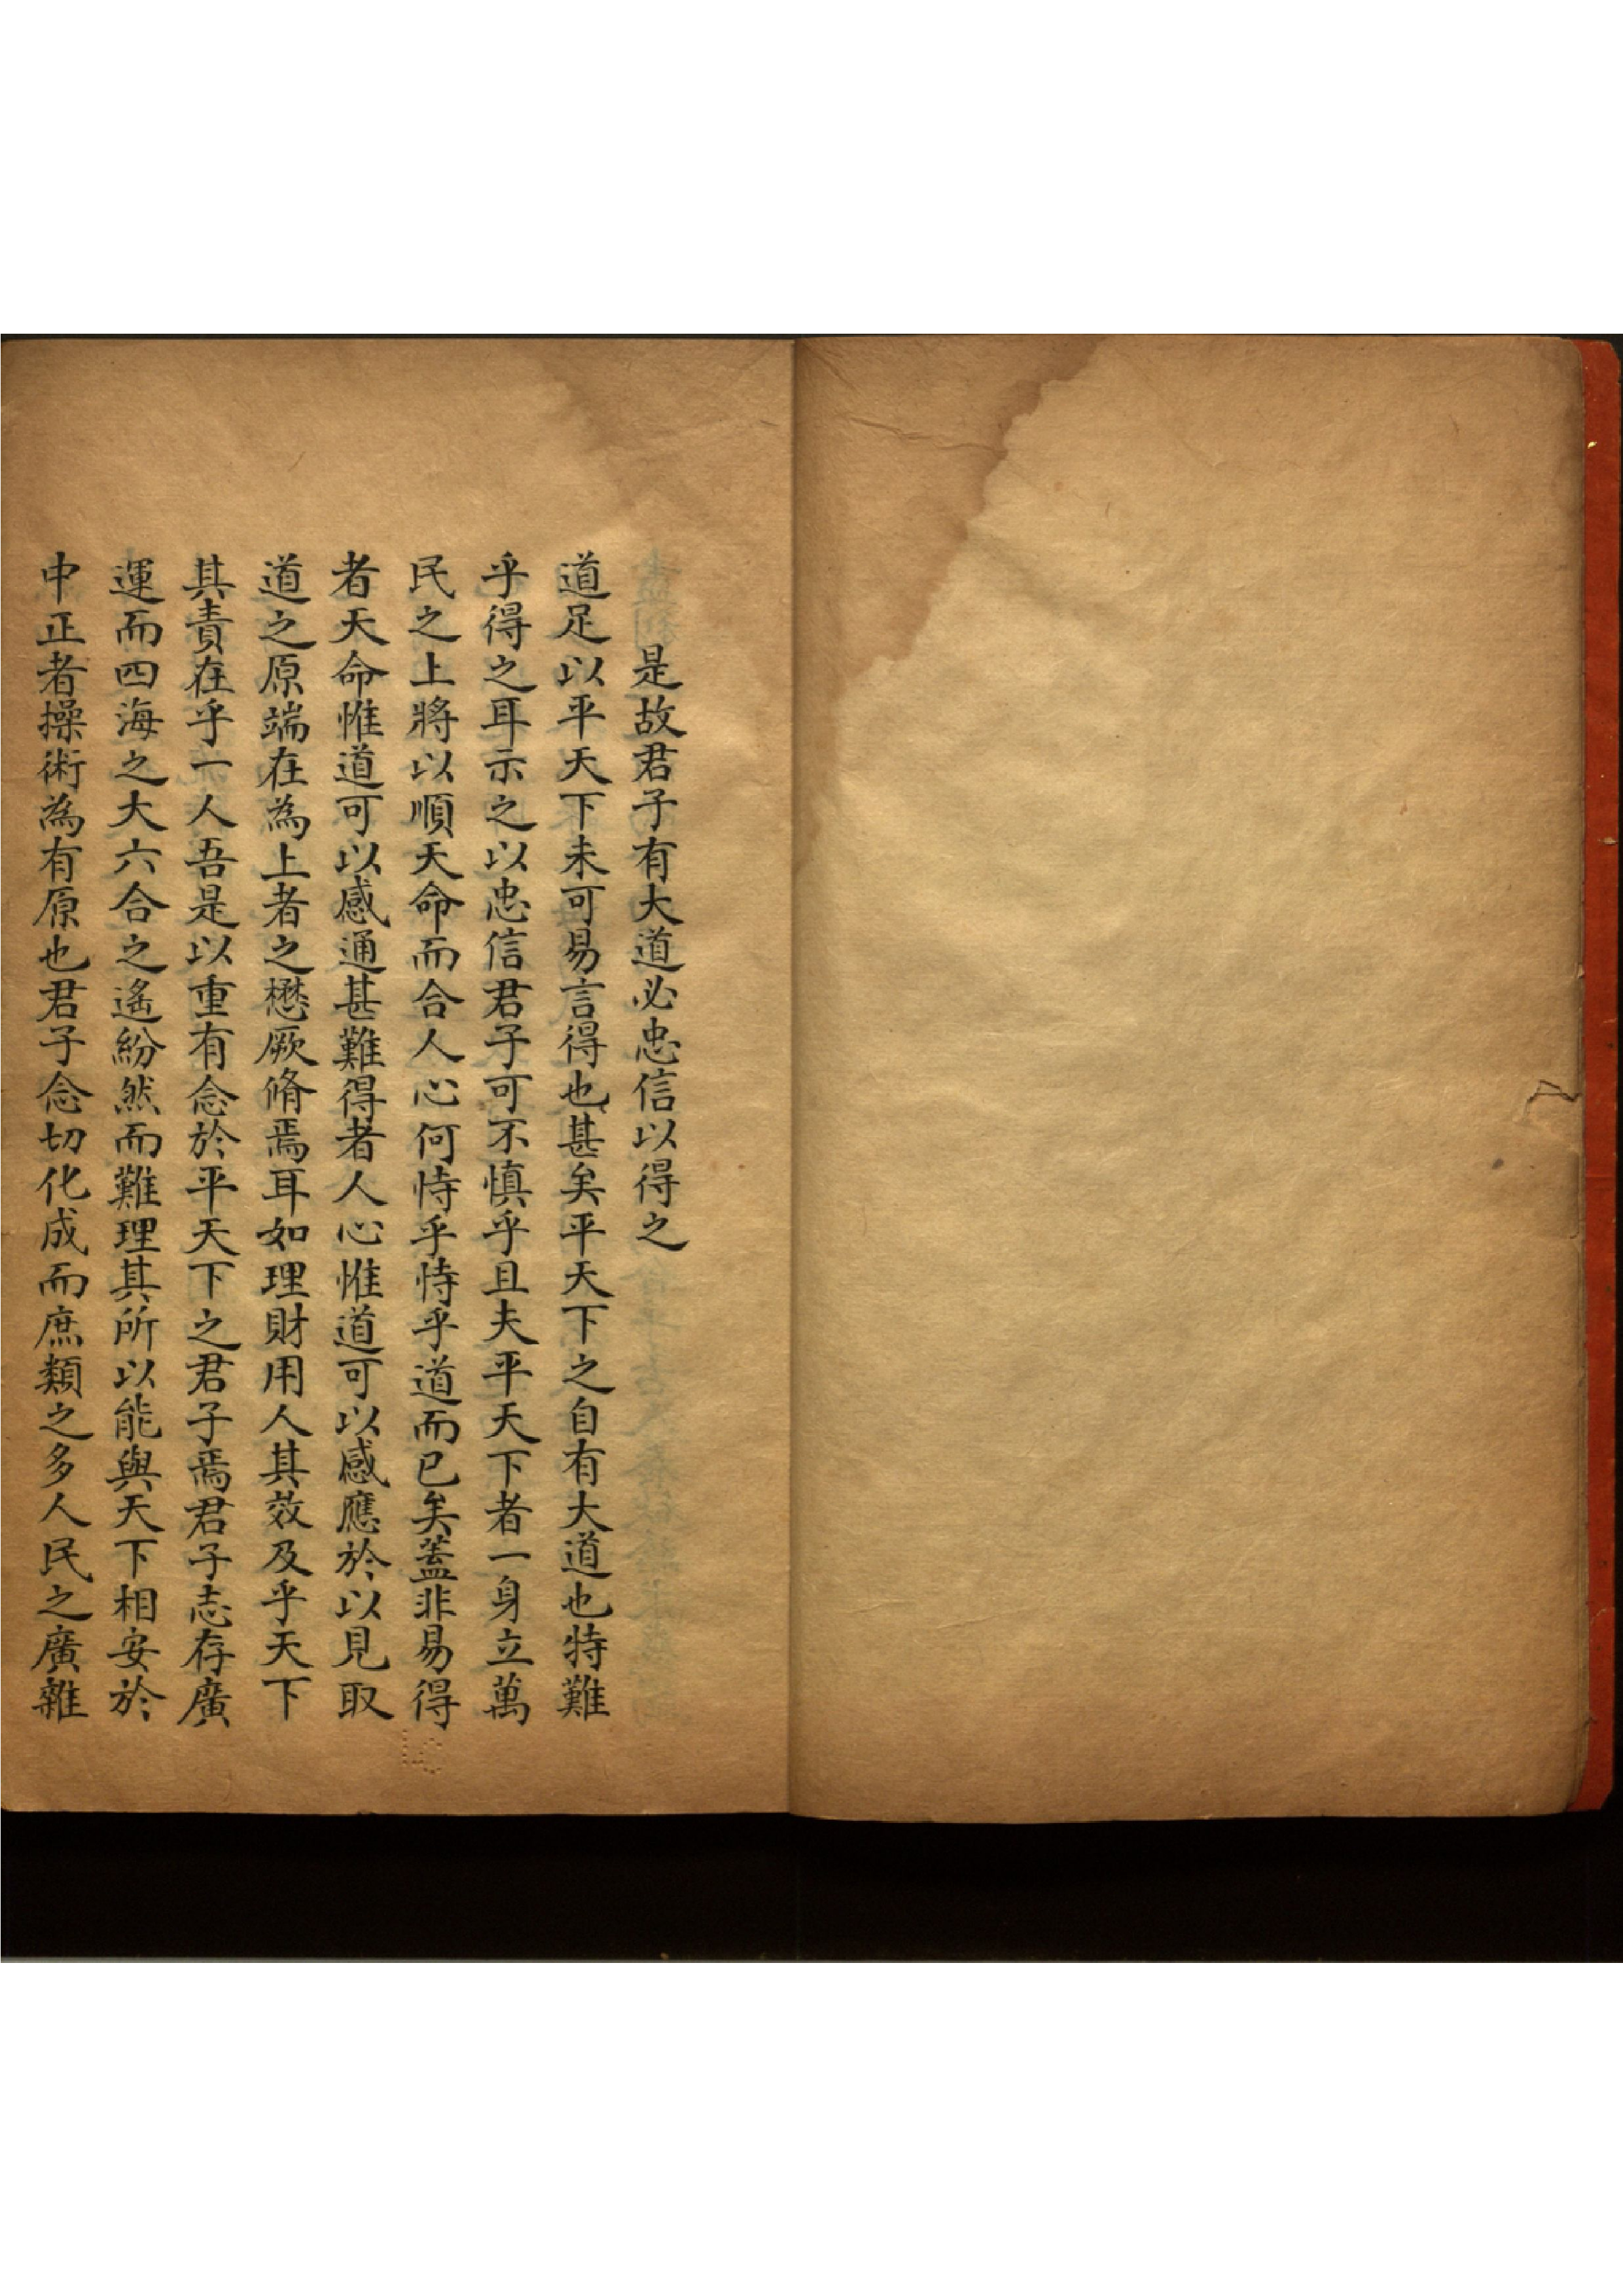 是故君子有大道必忠信以得之
道足以平天下未可易言得也甚矣平天下之自有大道也特難
乎得之耳示之以忠信君子可不慎乎且夫平天下者一身立萬
民之上將以順天命而合人心何恃乎恃乎道而已矣蓋非易得
者天命惟道可以感通甚難得者人心惟道可以感應於以見取
道之原端在為上者之懋厥脩焉耳如理財用人其效及乎天下
其責在乎一人吾是以重有念於平天下之君子焉君子志存廣
運而四海之大六合之遙紛然而難理其所以能與天下相安於
中正者操術為有原也君子念切化成而庶類之多人民之廣雜